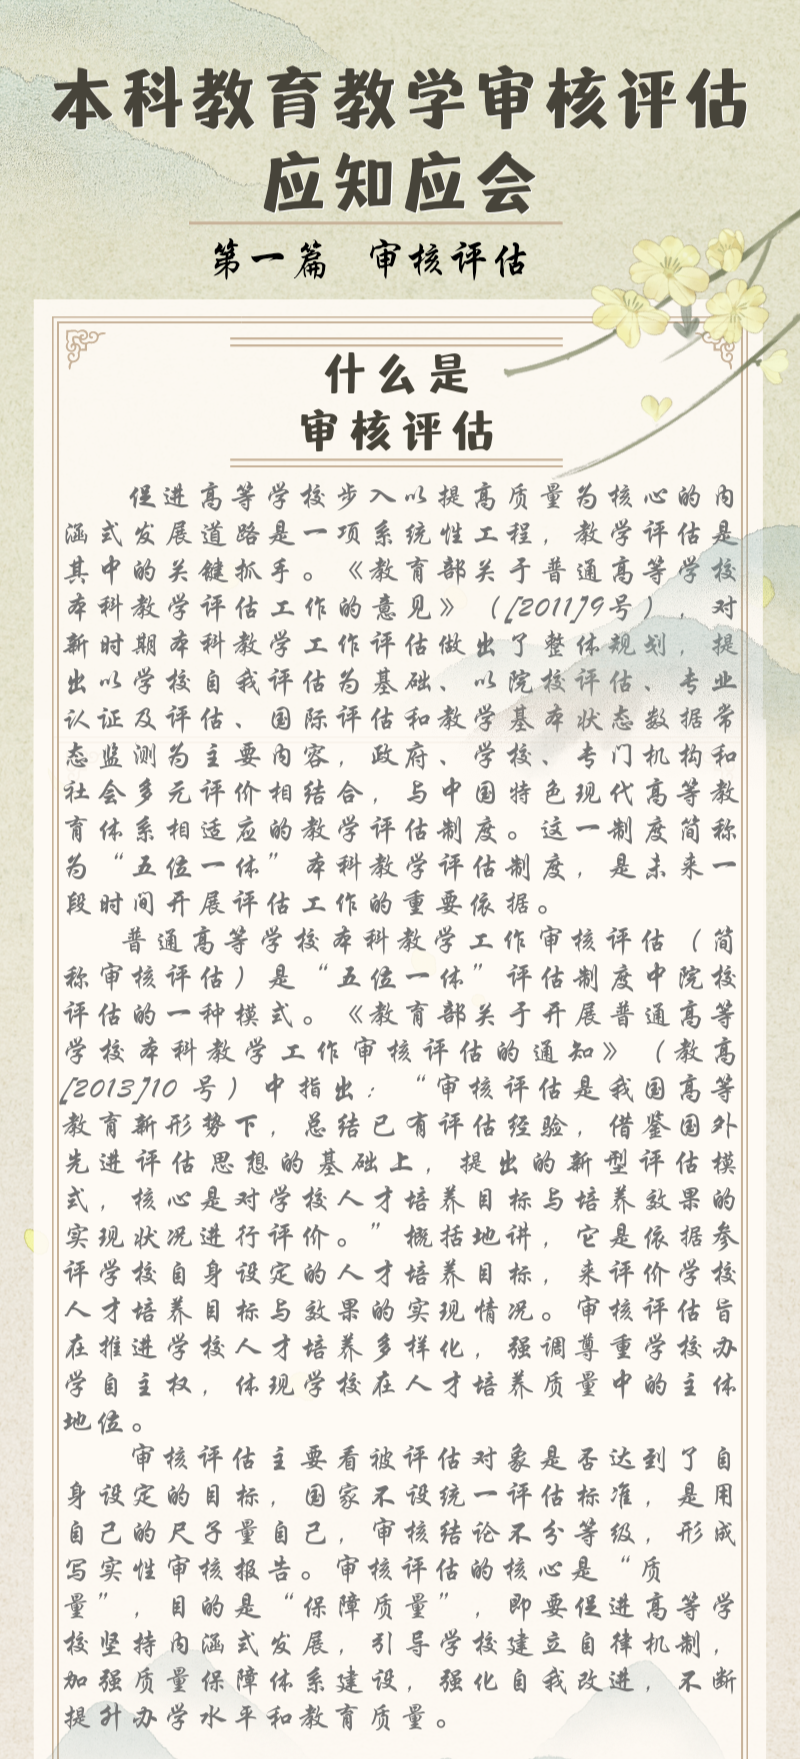 本科教育教学审核评估
应知应会
第一篇 审核评估
什么是
审核评估
促进高等学校步入以提高质量为核心的内
涵式发展道路是一项系统性工程，教学评估是
其中的关键抓手。《教育部关于普通高等学校
本科教学评估工作的意见》（[2011]9号），对
新时期本科教学工作评估做出了整体规划，提
出以学校自我评估为基础、以院校评估、专业
认证及评估、国际评估和教学基本状态数据常
态监测为主要内容，政府、学校、专门机构和
社会多元评价相结合，与中国特色现代高等教
育体系相适应的教学评估制度。这一制度简称
为“五位一体”本科教学评估制度，是未来一
段时间开展评估工作的重要依据。
普通高等学校本科教学工作审核评估（简
称审核评估）是“五位一体”评估制度中院校
评估的一种模式。《教育部关于开展普通高等
学校本科教学工作审核评估的通知》（教高
[2013]10 号）中指出：“审核评估是我国高等
教育新形势下，总结已有评估经验，借鉴国外
先进评估思想的基础上，提出的新型评估模
式，核心是对学校人才培养目标与培养效果的
实现状况进行评价。”概括地讲，它是依据参
评学校自身设定的人才培养目标，来评价学校
人才培养目标与效果的实现情况。审核评估旨
在推进学校人才培养多样化，强调尊重学校办
学自主权，体现学校在人才培养质量中的主体
地位。
审核评估主要看被评估对象是否达到了自
身设定的目标，国家不设统一评估标准，是用
自己的尺子量自己，审核结论不分等级，形成
写实性审核报告。审核评估的核心是“质
量”，目的是“保障质量”，即要促进高等学
校坚持内涵式发展，引导学校建立自律机制，
加强质量保障体系建设，强化自我改进，不断
提升办学水平和教育质量。